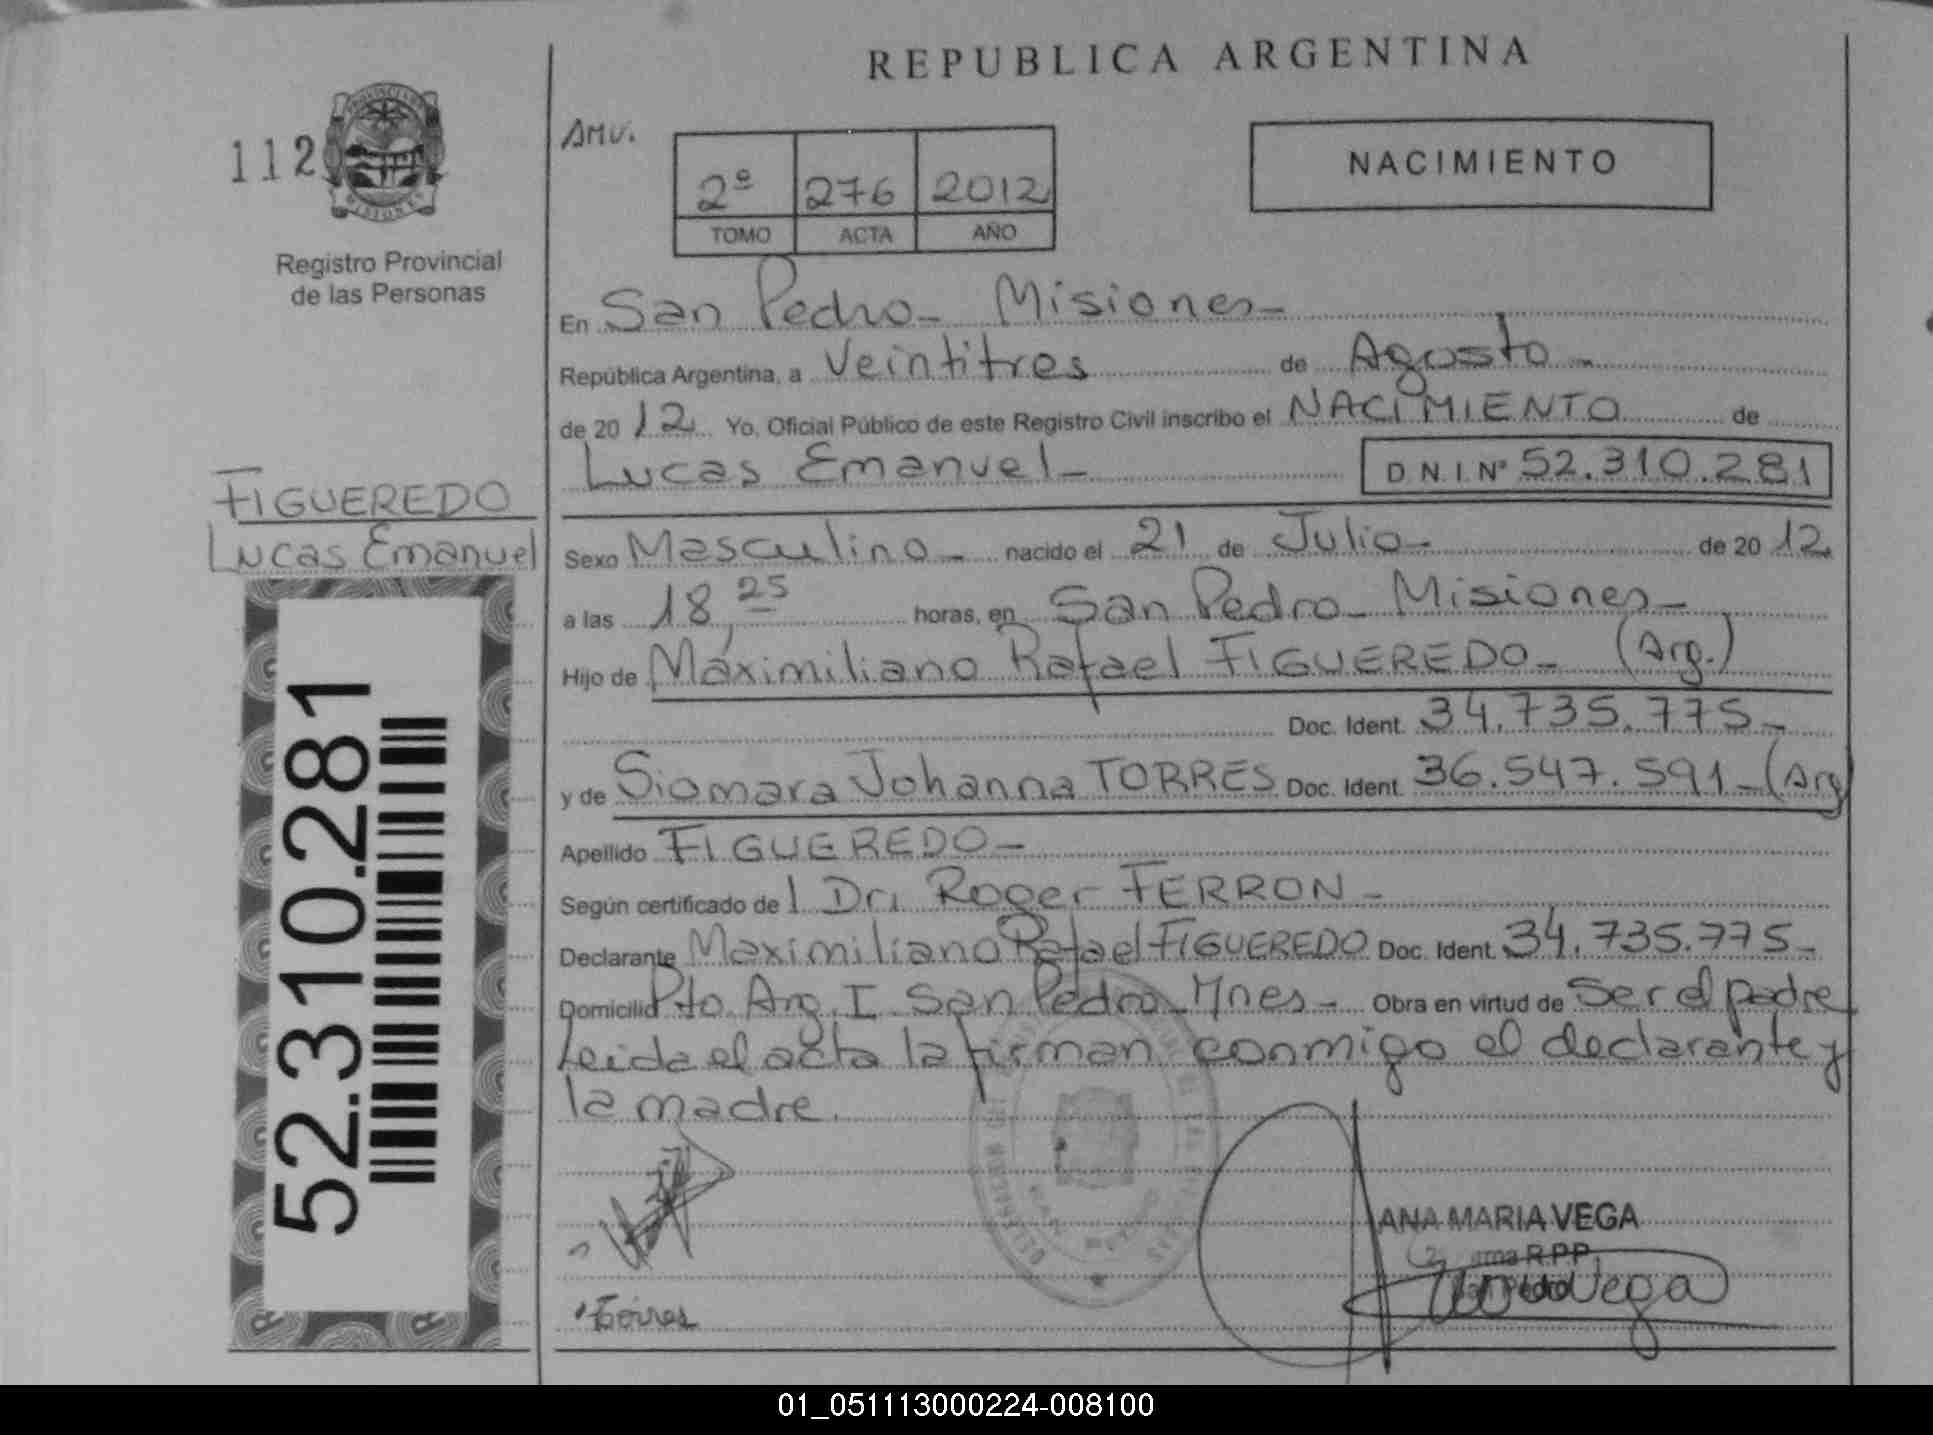 REPUBLICA ARGENTINA
112
AMV.
2º 276 2012
TOMO ACTA AÑO
NACIMIENTO
Registro Provincial
de las Personas
En San Pedro - Misiones -
República Argentina, a Veintitres de Agosto -
de 20 12 Yo, Oficial Público de este Registro Civil inscribo el NACIMIENTO de
Lucas Emanuel - D.N.I. Nº 52.310.281
FIGUEREDO
Lucas Emanuel
Sexo Masculino - nacido el 21 de Julio - de 20 12
a las 18,25 horas, en San Pedro - Misiones -
Hijo de Maximiliano Rafael FIGUEREDO - (Arg.)
Doc. Ident. 34.735.775 -
y de Siomara Johanna TORRES Doc. Ident. 36.547.591 - (Arg
Apellido FIGUEREDO -
Según certificado de l Dr. Roger FERRON -
Declarante Maximiliano Rafael FIGUEREDO Doc. Ident. 34.735.775 -
Domicilio Pto. Arg. I San Pedro - Mnes - Obra en virtud de Ser el padre
Leida el acta la firman conmigo el declarante y
la madre.
52.310.281
ANA MARIA VEGA
R.P.P.
Torres
Vega
01_051113000224-008100